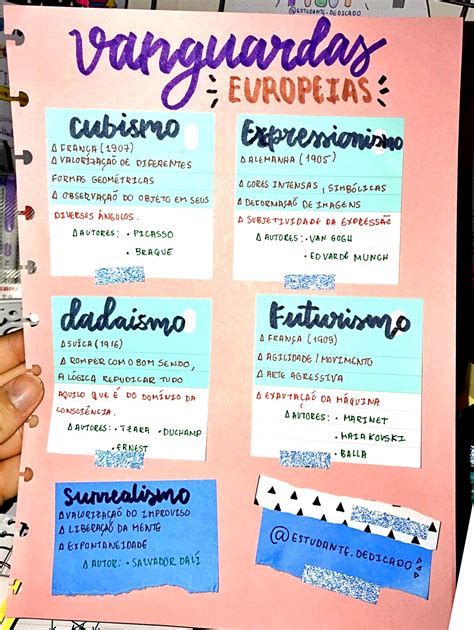 @ESTUDANTE.DEDICADO
Vanguardas
EUROPEIAS
Cubismo
Δ FRANÇA (1907)
Δ VALORIZAÇÃO DE DIFERENTES
FORMAS GEOMÉTRICAS
Δ OBSERVAÇÃO DO OBJETO EM SEUS
DIVERSOS ÂNGULOS.
Δ AUTORES: • PICASSO
• BRAQUE
Expressionismo
Δ ALEMANHA (1905)
Δ CORES INTENSAS, SIMBÓLICAS
Δ DEFORMAÇÃO DE IMAGENS
Δ SUBJETIVIDADE DA EXPRESSÃO
Δ AUTORES: • VAN GOGH
• EDVARD MUNCH
dadaísmo
Δ SUÍCA (1916)
Δ ROMPER COM O BOM SENDO,
A LÓGICA REPUDICAR TUDO
AQUILO QUE É DO DOMÍNIO DA
CONSCIÊNCIA.
Δ AUTORES: • TZARA • DUCHAMP
• ERNEST
Futurismo
Δ FRANÇA (1909)
Δ AGILIDADE / MOVIMENTO
Δ ARTE AGRESSIVA
Δ EXAUTAÇÃO DA MÁQUINA
Δ AUTORES: • MARINET
• MAIAKOVSKI
• BALLA
Surrealismo
Δ VALORIZAÇÃO DO IMPROVISO
Δ LIBERAÇÃO DA MENTE
Δ EXPONTANEIDADE
Δ AUTOR: • SALVADOR DALÍ
@ESTUDANTE.DEDICADO